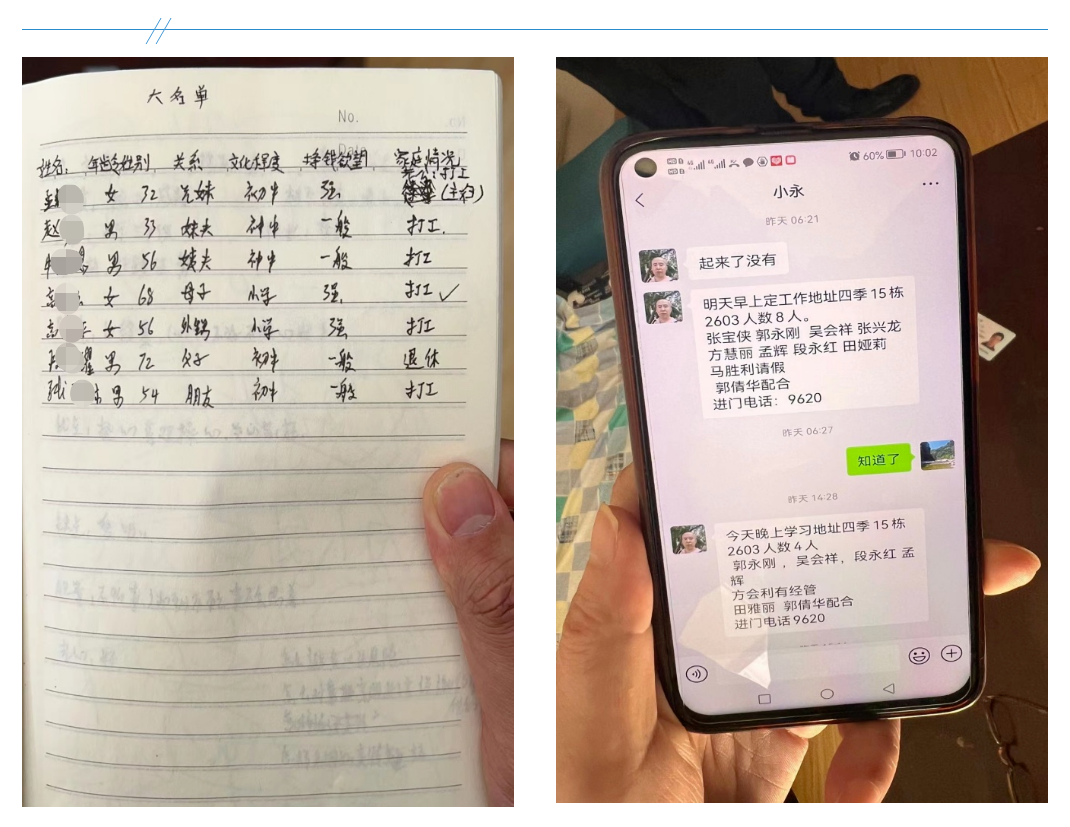 大名单
No.
Date
姓名: 年龄 性别 关系 文化程度 挣钱欲望 家庭情况
女 32 兄妹 初中 强 打工
赵 男 33 妹夫 初中 一般 打工
男 56 姨夫 初中 一般 打工
女 68 母子 小学 强 打工 ✓
女 56 外甥 小学 强 打工
男 72 父子 初中 一般 退休
张 男 54 朋友 初中 一般 打工
60% 10:02
小永
昨天 06:21
起来了没有
明天早上定工作地址四季15栋
2603人数8人。
张宝侠 郭永刚 吴会祥 张兴龙
方慧丽 孟辉 段永红 田娅莉
马胜利请假
郭倩华配合
进门电话：9620
昨天 06:27
知道了
昨天 14:28
今天晚上学习地址四季15栋
2603人数4人
郭永刚，吴会祥，段永红 孟
辉
方会利有经管
田雅丽 郭倩华配合
进门电话9620